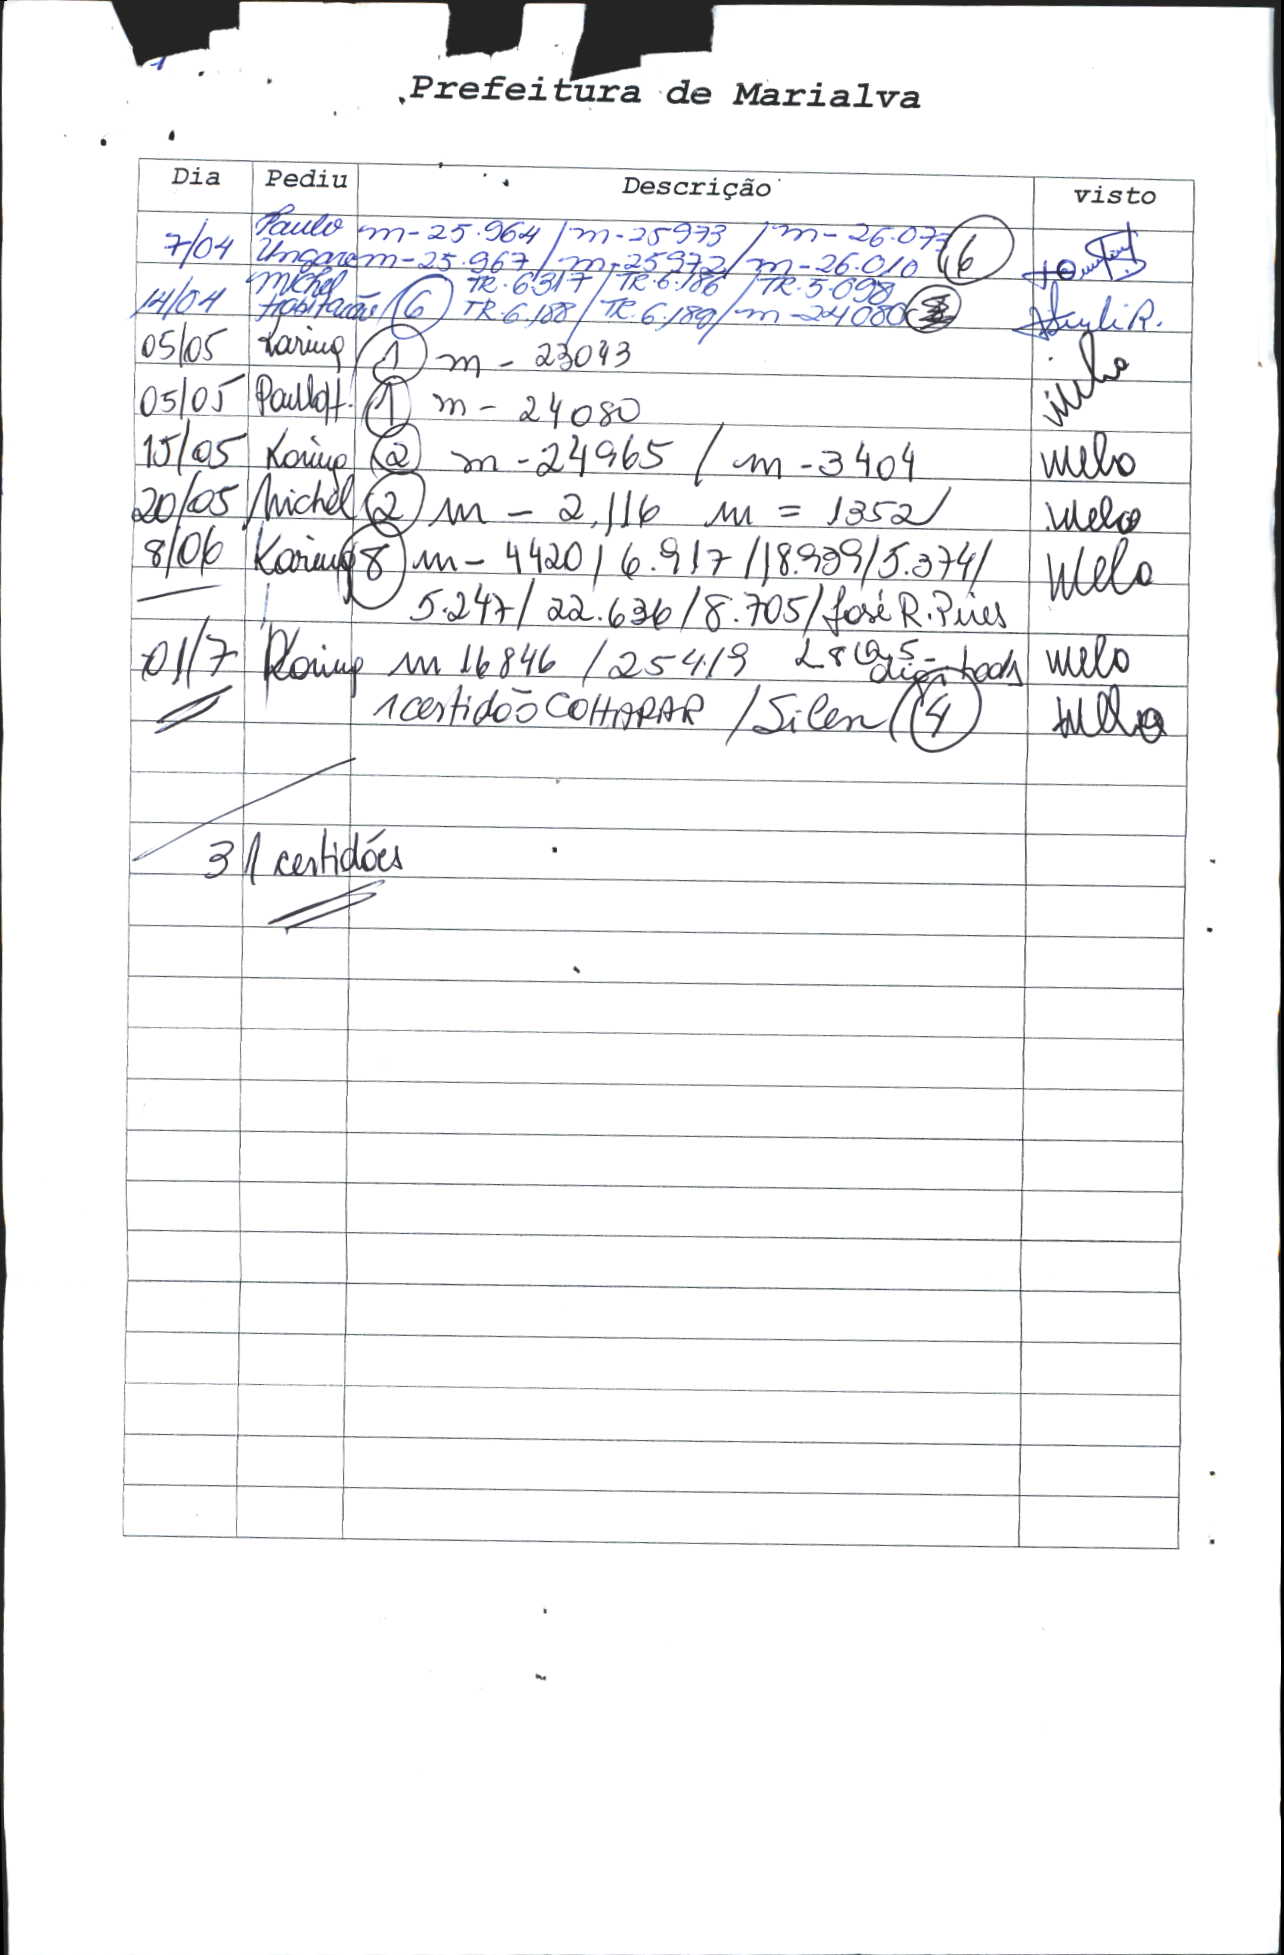 Prefeitura de Marialva
Dia Pediu Descrição visto
7/04 Paulo m-25.964 / m-25973 / m-26.077 6
m-25.967 / m-25972 / m-26.010
14/04 Michel TR.6.317 / TR.6.186 / TR.5.098
Habitação 6 TR.6.188 / TR.6.189 / m-24080
05/05 Karina 1 m - 23043
05/05 Paulo H. 1 m - 24080
15/05 Karina 2 m - 24965 / m - 3404 melo
20/05 Michel 2 m - 2.116 m = 1352/ melo
8/06 Karina 8 m - 4420 / 6.917 / 18.939 / 5.374 / melo
5.247 / 22.636 / 8.705 / José R. Pires
01/7 Karina m 16846 / 25419 melo
1 certidão COHAPAR / 4
31 certidões